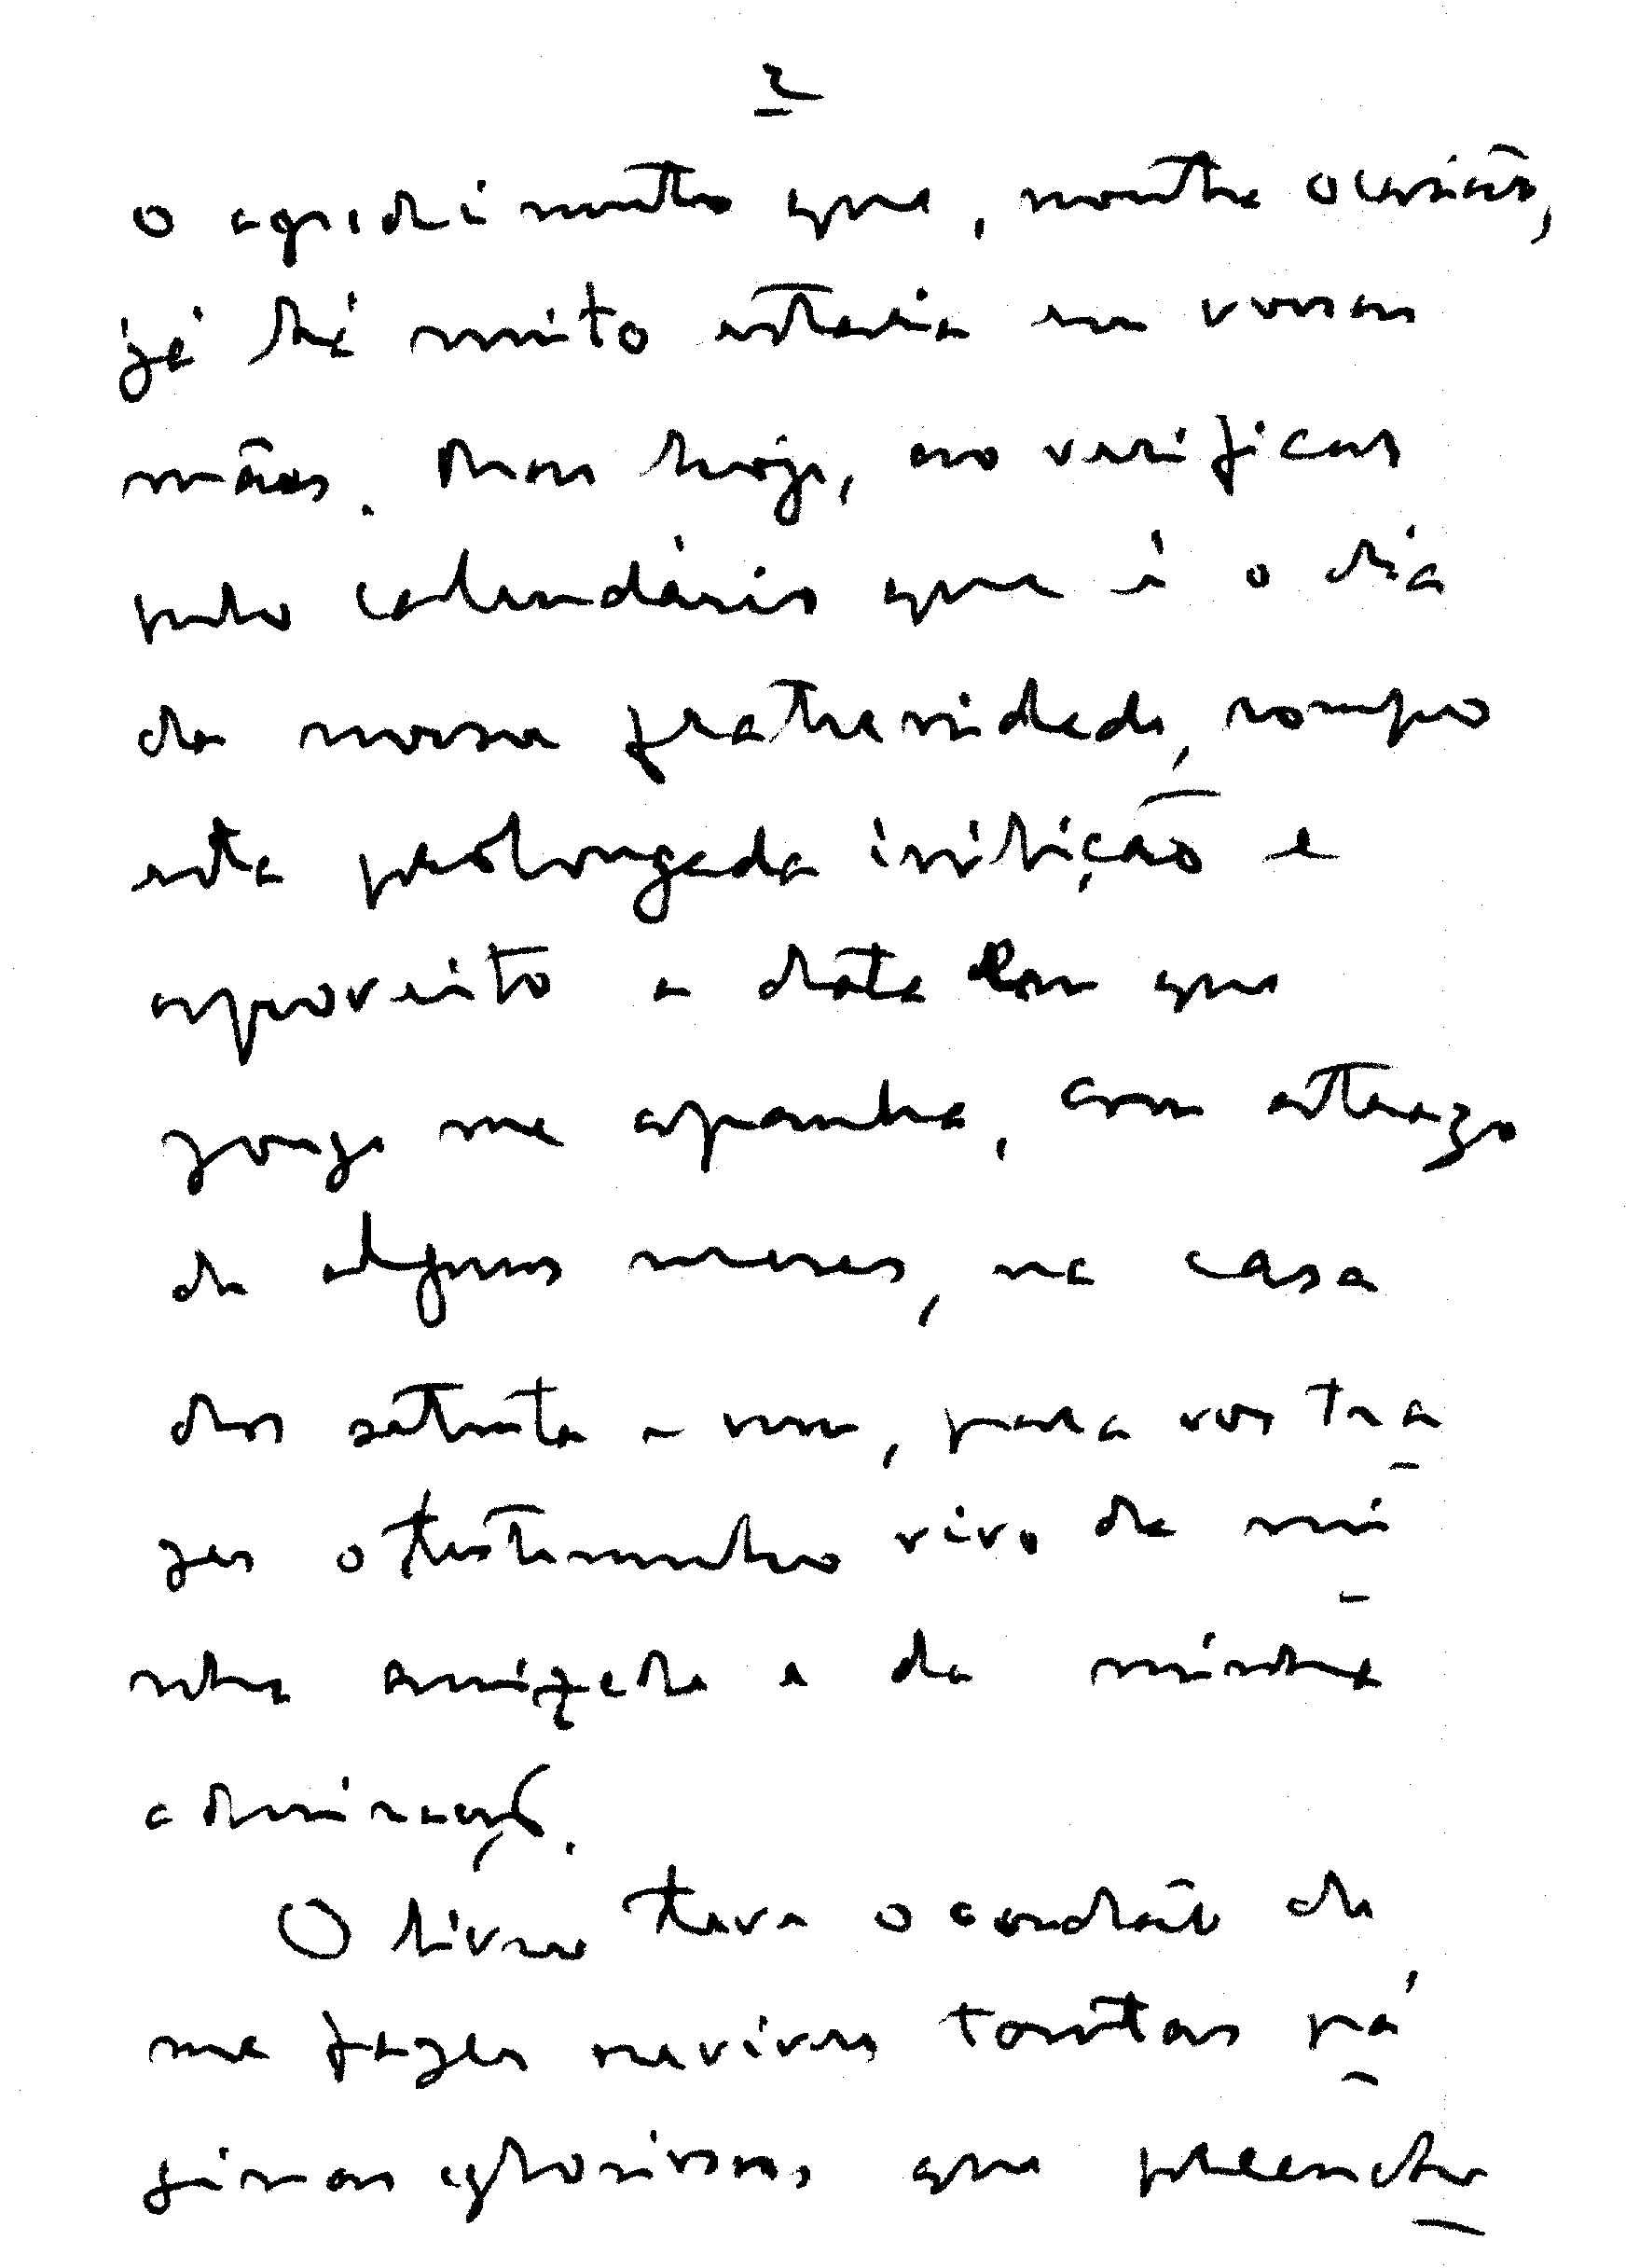 2
o agradecimento que, noutra ocasião,
já há muito estaria em vossas
mãos. Mas hoje, ao verificar
pelo calendário que é o dia
da nossa fraternidade, rompo
esta prolongada inibição e
aproveito a data em que
me apanha, com atrazo
de alguns meses, na casa
dos setenta e um, para vos tra
zer o testemunho vivo da mi
nha amizade e da minha
admiração.
O livro teve o condão de
me fazer reviver tantas pá
ginas gloriosas, que preenche